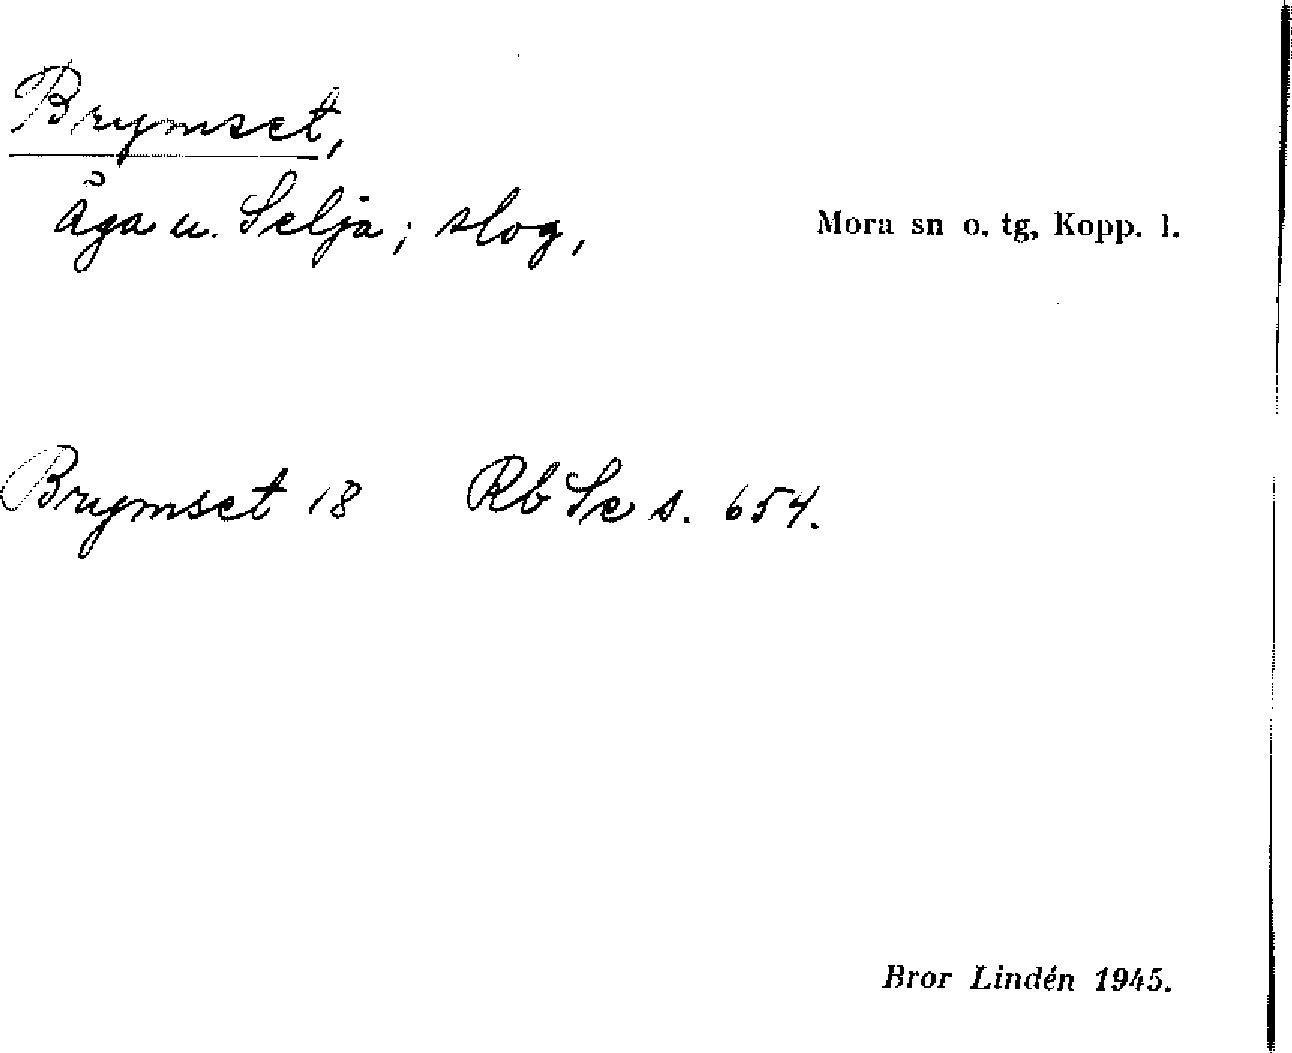 Brymset,
äga u. Selja; slog,
Mora sn o. tg, Kopp. l.
Brymset 18 Rb Se s. 654.
Bror Lindén 1945.